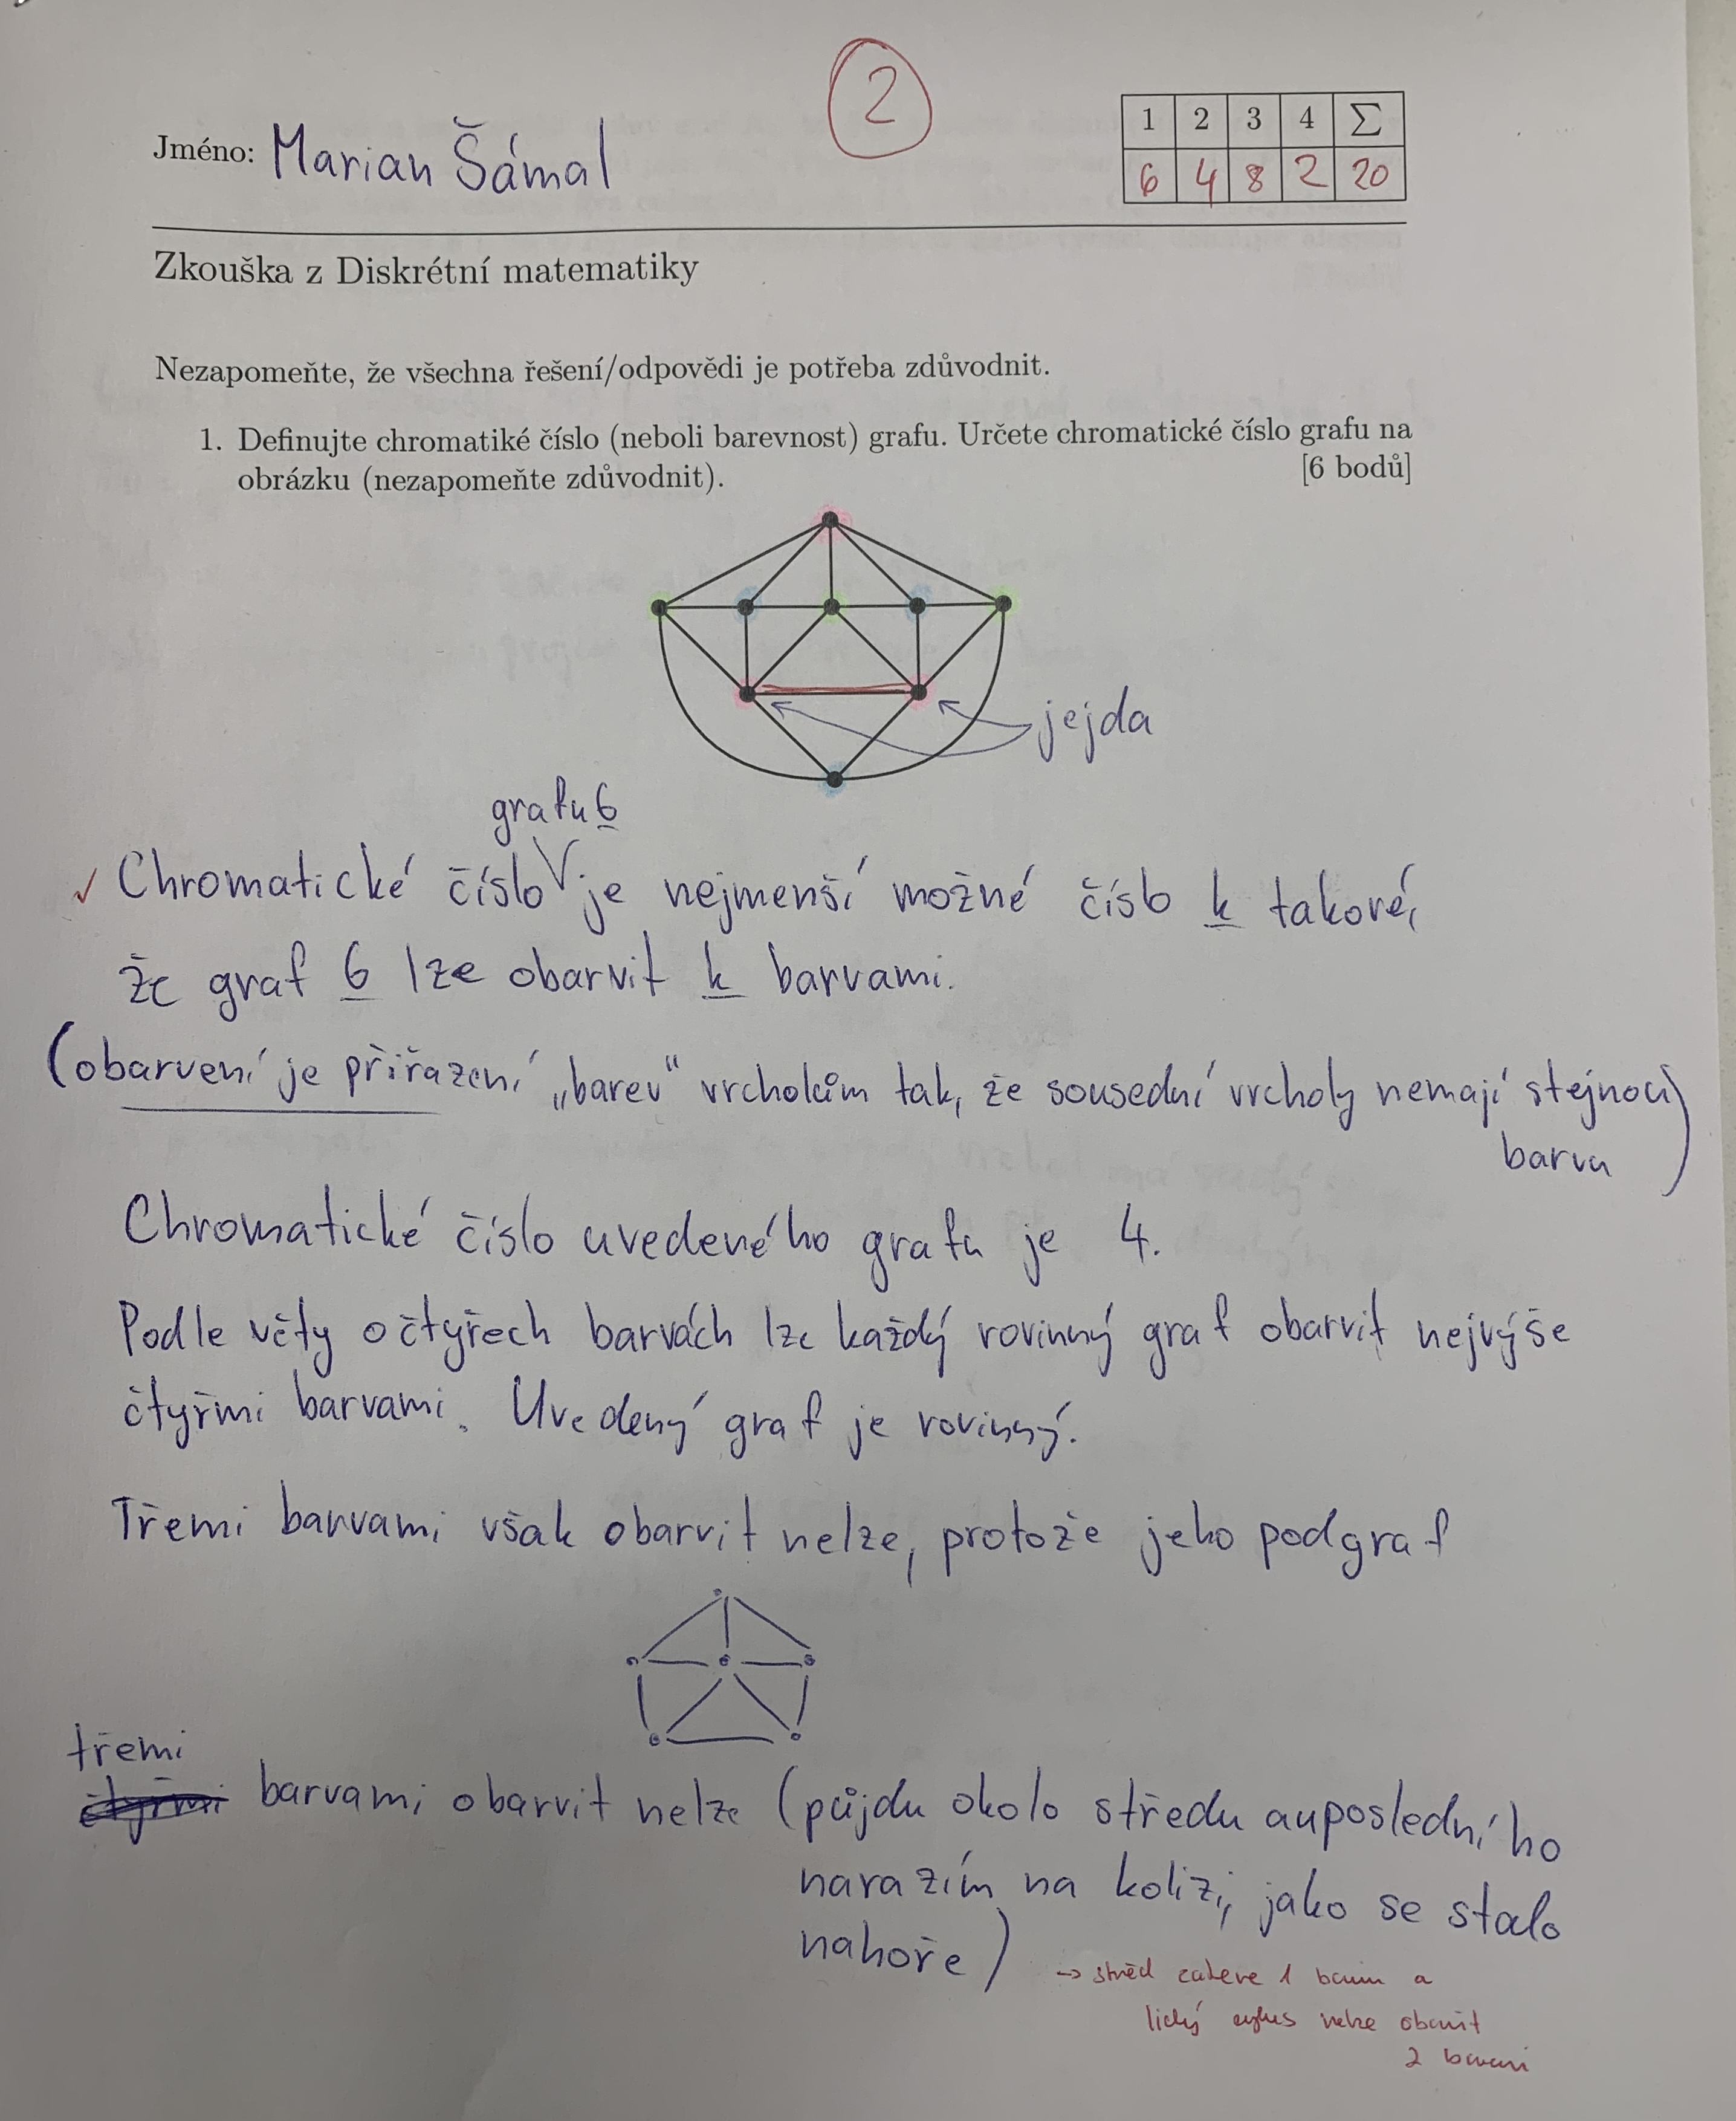 2
Jméno: Marian Šámal
1 2 3 4 Σ
6 4 8 2 20
Zkouška z Diskrétní matematiky
Nezapomeňte, že všechna řešení/odpovědi je potřeba zdůvodnit.
1. Definujte chromatiké číslo (neboli barevnost) grafu. Určete chromatické číslo grafu na
obrázku (nezapomeňte zdůvodnit). [6 bodů]
jejda
grafu G
✓ Chromatické číslo je nejmenší možné číslo k takové,
že graf G lze obarvit k barvami.
(obarvení je přiřazení „barev“ vrcholům tak, že sousední vrcholy nemají stejnou
barvu)
Chromatické číslo uvedeného grafu je 4.
Podle věty o čtyřech barvách lze každý rovinný graf obarvit nejvýše
čtyřmi barvami. Uvedený graf je rovinný.
Třemi barvami však obarvit nelze, protože jeho podgraf
třemi
čtyřmi barvami obarvit nelze (půjdu okolo středu a u posledního
narazím na kolizi, jako se stalo
nahoře)
→ střed zabere 1 barvu a
lichý cyklus nelze obarvit
2 barvami